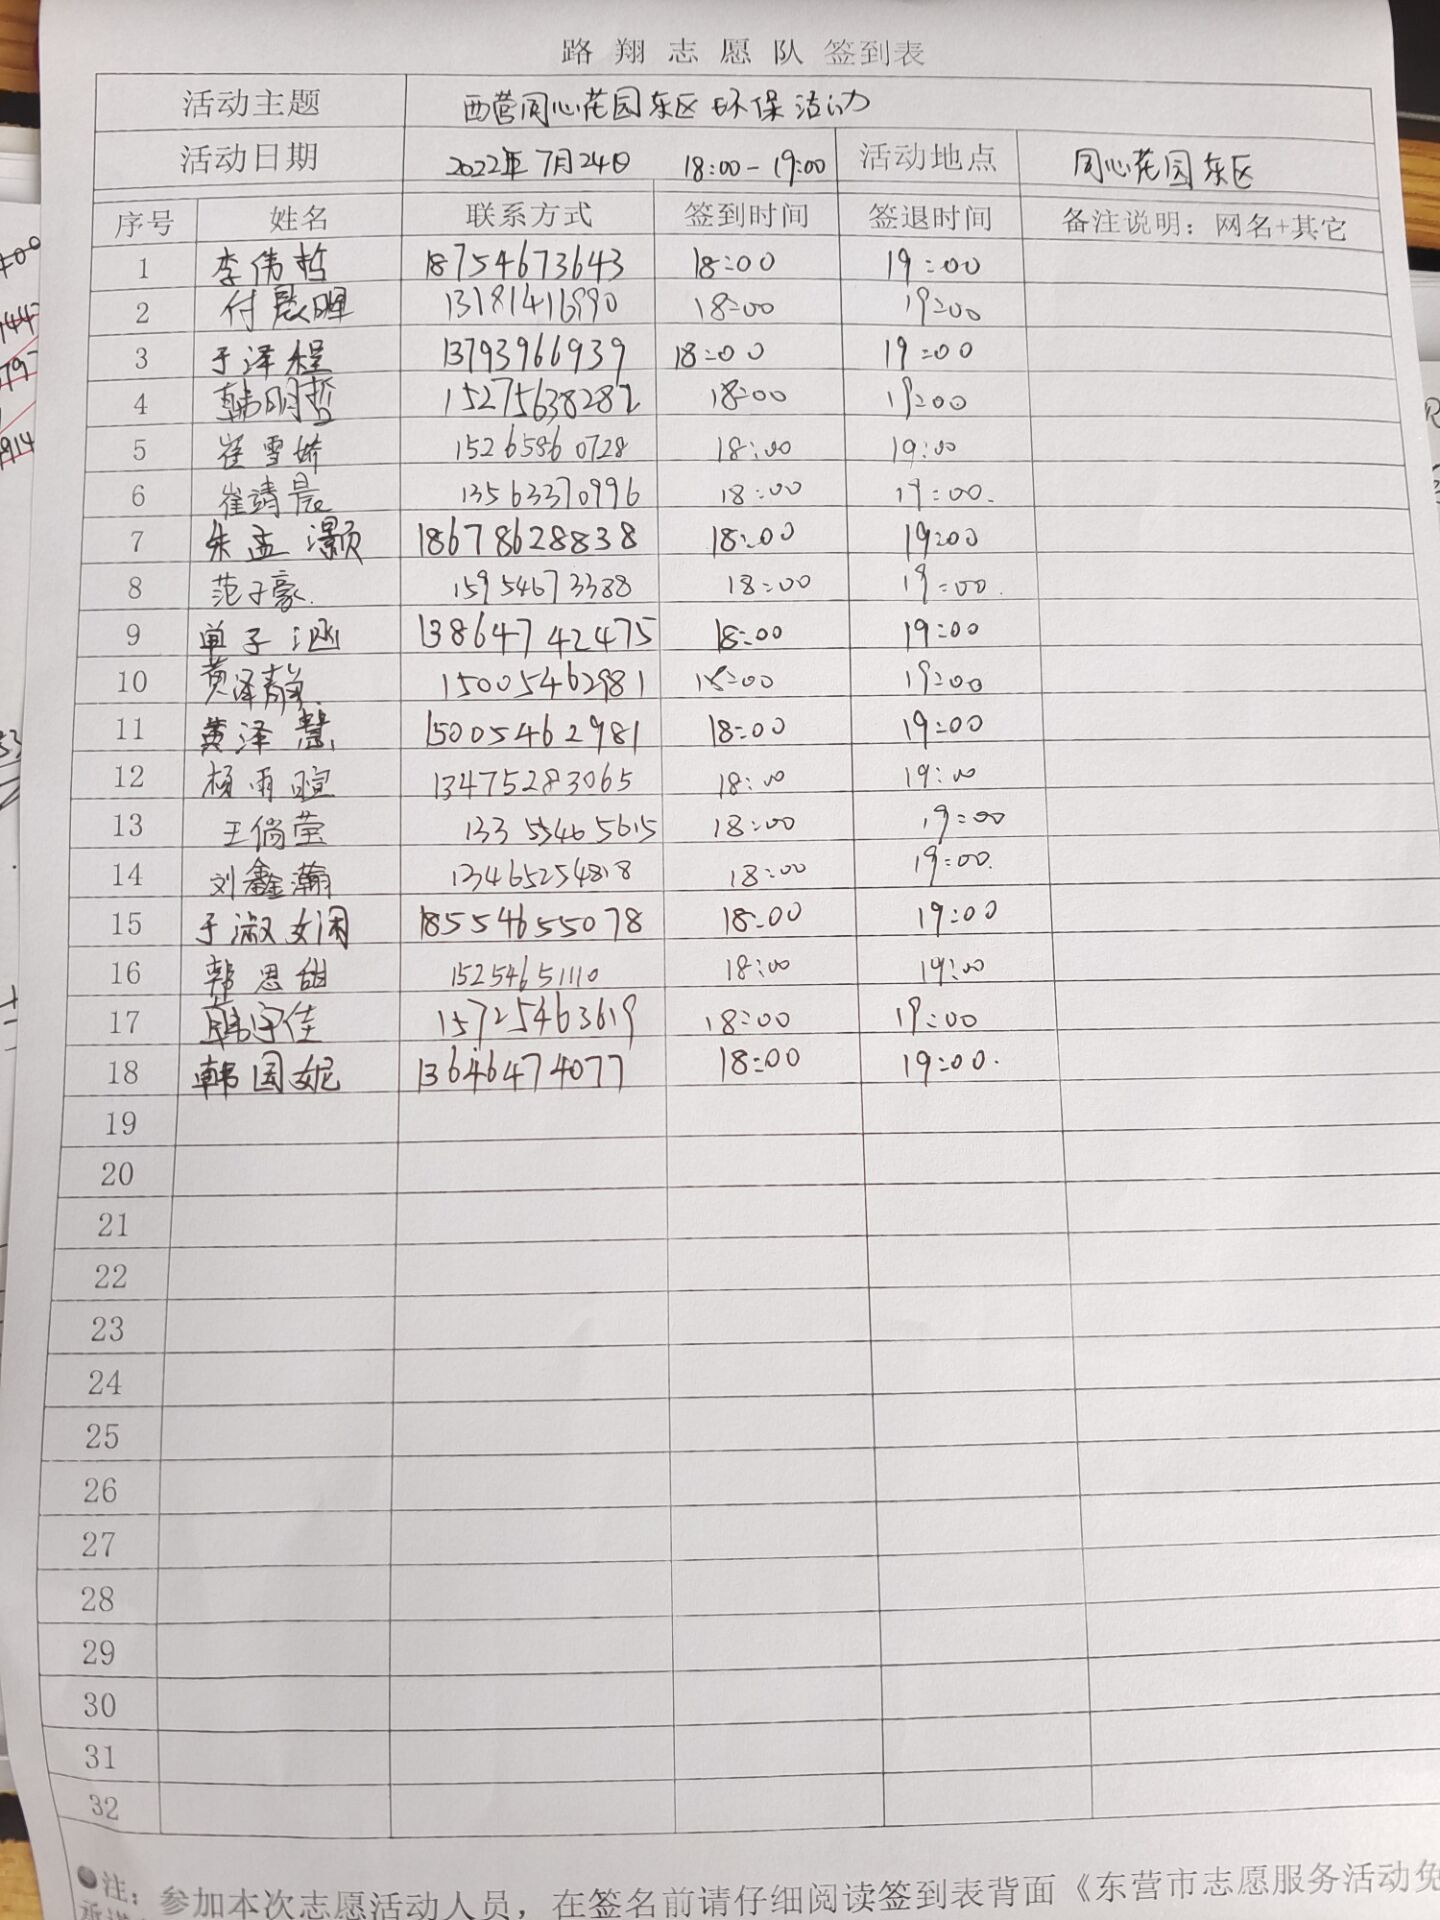 路翔志愿队签到表
活动主题 西营同心花园东区环保活动
活动日期 2022年7月24日 18:00-19:00 活动地点 同心花园东区
序号 姓名 联系方式 签到时间 签退时间 备注说明：网名+其它
1 李伟哲 18754673643 18:00 19:00
2 付晨晖 13181416990 18:00 19:00
3 于泽程 13793966939 18:00 19:00
4 韩明哲 15275638282 18:00 19:00
5 崔雪娇 15265860728 18:00 19:00
6 崔靖晨 13563370996 18:00 19:00.
7 朱孟灏 18678628838 18:00 19:00
8 范子豪. 15954673388 18:00 19:00.
9 单子涵 13864742475 18:00 19:00
10 黄泽静 15005462981 18:00 19:00
11 黄泽慧 15005462981 18:00 19:00
12 杨雨暄 13475283065 18:00 19:00
13 王倘莹 13355465615 18:00 19:00
14 刘鑫瀚 13465254818 18:00 19:00.
15 于淑娴 18554655078 18:00 19:00
16 韩思甜 15254651110 18:00 19:00
17 韩宇佳 15725463619 18:00 19:00
18 韩国妮 13646474077 18:00 19:00.
19
20
21
22
23
24
25
26
27
28
29
30
31
32
●注：参加本次志愿活动人员，在签名前请仔细阅读签到表背面《东营市志愿服务活动免